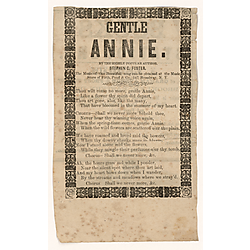 GENTLE
ANNIE.
BY THE HIGHLY POPULAR AUTHOR,
STEPHEN C. FOSTER.
The Music of this Beautiful song can be obtained at the Music
Store of Firth, Pond & Co., 547 Broadway, N. Y.
Thou wilt come no more, gentle Annie,
Like a flower thy spirit did depart,
Thou art gone, alas, like the many,
That have bloomed in the summer of my heart.
Chorus—Shall we never more behold thee,
Never hear thy winning voice again,
When the spring-time comes, gentle Annie,
When the wild flowers are scattered o'er the plain.
We have roamed and loved amid the bowers,
When thy downy cheeks were in bloom,
Now I stand alone amid the flowers,
While they mingle their perfumes o'er thy tomb.
Chorus—Shall we never more, &c.
Ah, the hours grow sad while I ponder
Near the silent spot where thou art laid,
And my heart bows down when I wander,
By the streams and meadows where we stray'd.
Chorus—Shall we never more, &c.